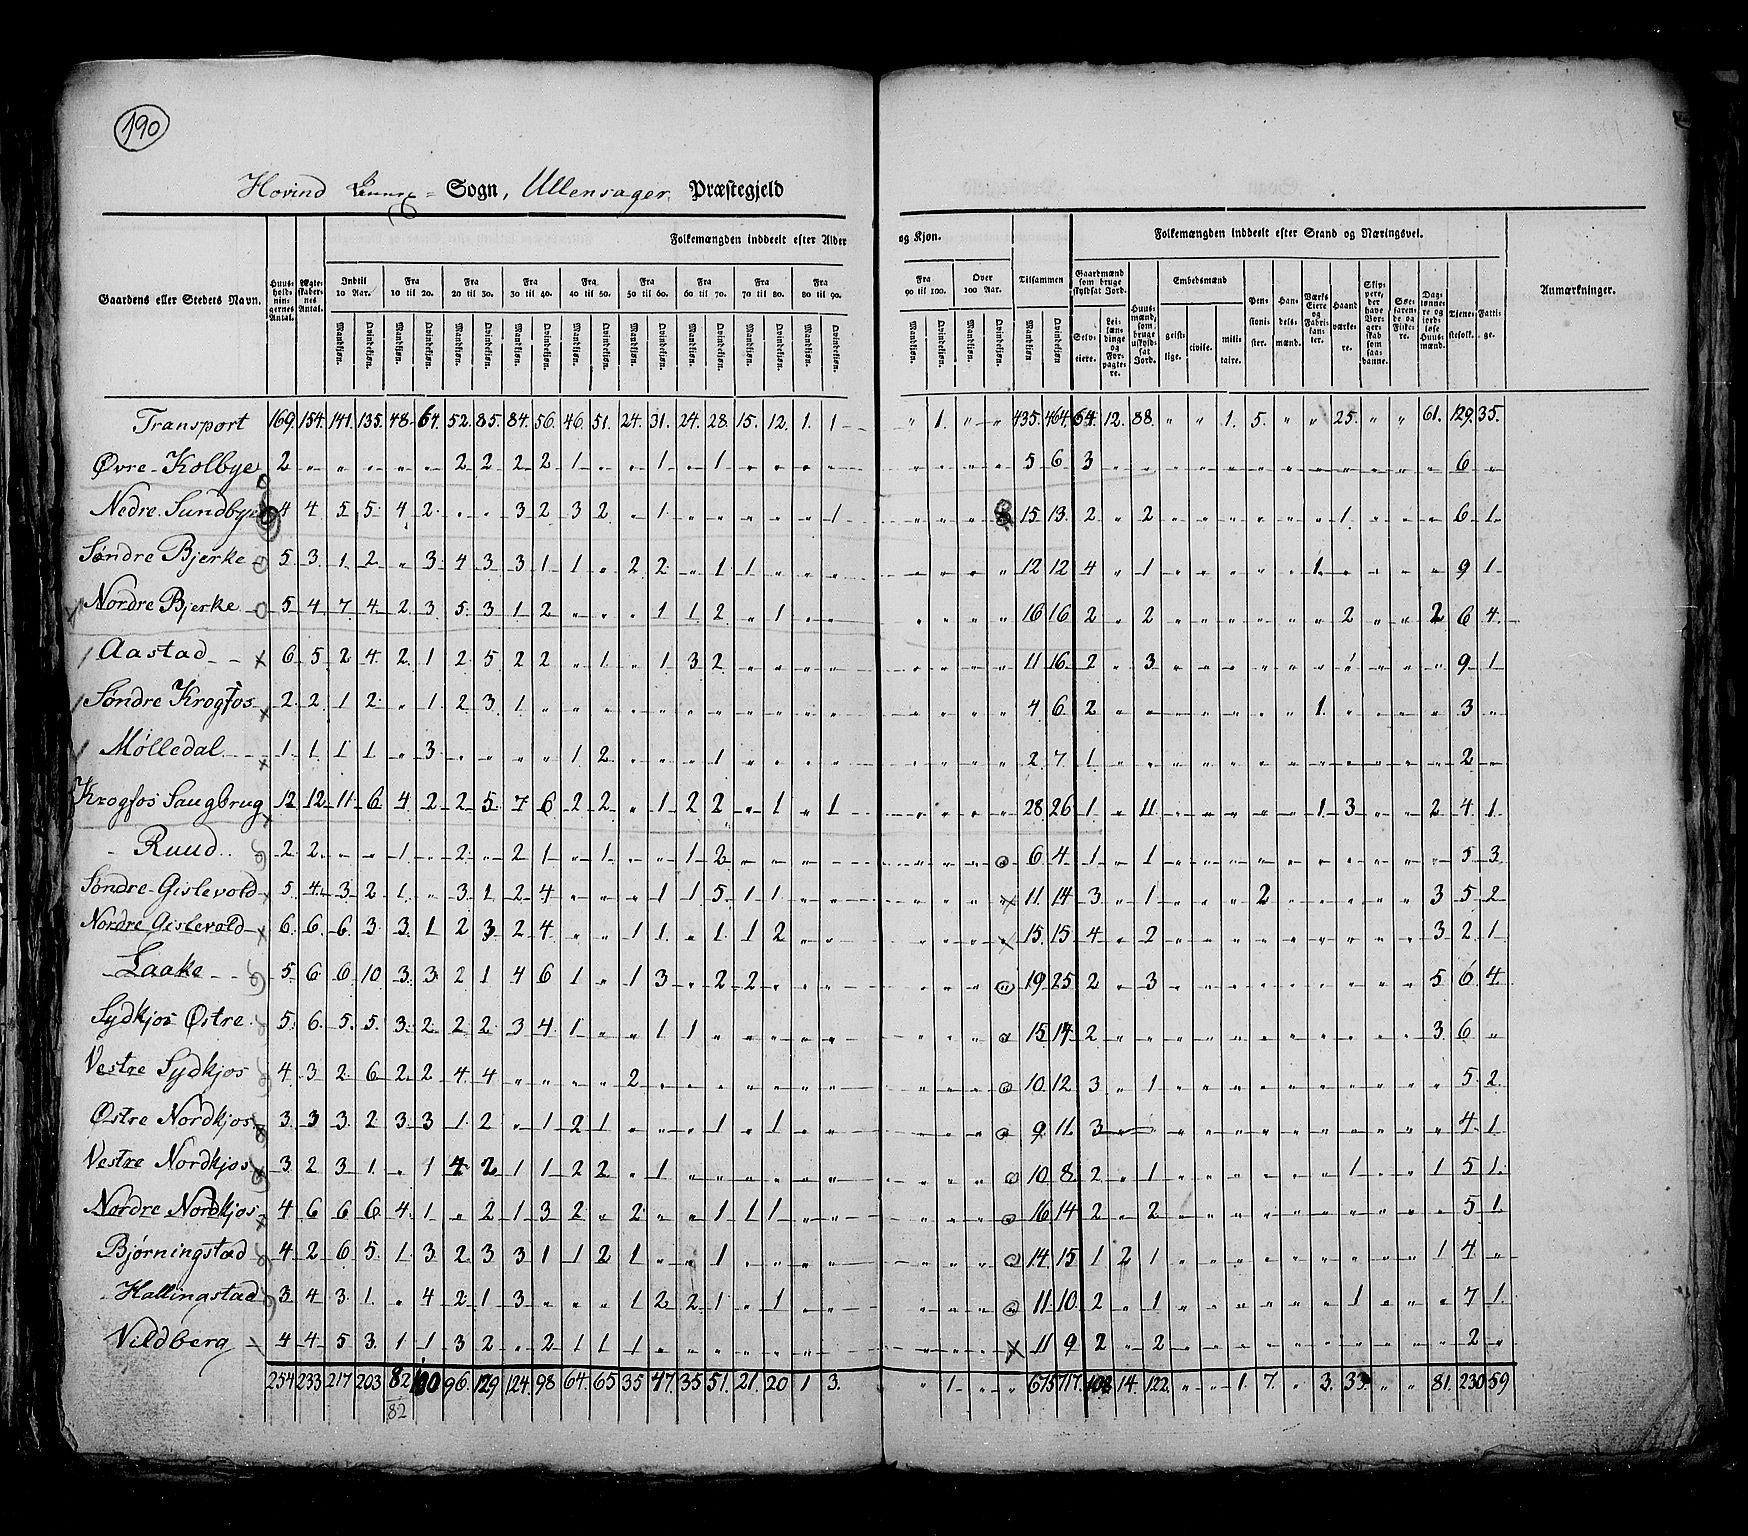 190
Hovind Sogn, Ullensager Præstegjeld
Folkemængden inddeelt efter Alder og Kjøn. Tilsammen Folkemængden inddeelt efter Stand og Næringsvei.
Gaardens eller Stedets Navn. Huusholdningernes Antal. Ægteskabernes Antal. Indtil 10 Aar. Fra 10 til 20. Fra 20 til 30. Fra 30 til 40. Fra 40 til 50. Fra 50 til 60. Fra 60 til 70. Fra 70 til 80. Fra 80 til 90. Fra 90 til 100. Over 100 Aar. Gaardmænd som bruge skyldsat Jord. Huusmænd, som bruge uskyldsat Jord. Embedsmænd Pensionister. Handelsmænd. Værks Eiere og Fabrikanter. Haandværkere. Skippere, der have Borgerskab som saadanne. Søefarende og Fiskere. Daglønnere og jordløse Huusmænd. Tjenestefolk. Fattige. Anmærkninger.
Mandkjøn. Qvindekjøn. Mandkjøn. Qvindekjøn. Mandkjøn. Qvindekjøn. Mandkjøn. Qvindekjøn. Mandkjøn. Qvindekjøn. Mandkjøn. Qvindekjøn. Mandkjøn. Qvindekjøn. Mandkjøn. Qvindekjøn. Mandkjøn. Qvindekjøn. Mandkjøn. Qvindekjøn. Mandkjøn. Qvindekjøn. Mandkjøn Qvindekjøn Selveiere. Leilændinge og Forpagtere. geistlige. civile. militaire.
Transport 169. 154. 141. 135. 48. 64. 52. 85. 84. 56. 46. 51. 24. 31. 24. 28. 15. 12. 1. 1 " 1. " " 435. 464. 64. 12. 88. " " 1. 5. " " 25. " " 61. 129. 35.
Øvre Kolbye 2 " " " " " 2 2 2 2 1 " " 1 " 1 " " " " " " " " 5 6 3 " " " " " " " " " " " " 6 "
Nedre Sundbye 4 4 5 5 4 2 " " 3 2 3 2 " 1 " " " " " 1 " " " 15 13 2 " 2 " " " " " " 1 " " " 6 1
Søndre Bjerke 5 3 1 2 " 3 4 3 3 1 1 " 2 2 " 1 1 " " " " " " " 12 12 4 " 1 " " " " " 1 " " " " 9 1
Nordre Bjerke 5 4 7 4 2 3 5 3 1 2 " " " 1 1 2 " 1 " " " " " " 16 16 2 " 2 " " " " " " 2 " " 2 6 4
Aastad 6 5 2 4 2 1 2 5 2 2 " 1 " 1 3 2 " " " " " " " " 11 16 2 " 3 " " " " " " 1 " " " 9 1
Søndre Krogfos 2 2 1 2 " 1 2 3 1 " " " " " " " " " " " " " " " 4 6 2 " " " " " " " 1 " " " " 3 "
Mølledal 1 1 1 1 " 3 " " " " 1 2 " " " 1 " " " " " " " " 2 7 1 " " " " " " " " " " " " 2 "
Krogfos Saugbrug 12 12 11 6 4 2 2 5 7 6 2 2 " 1 2 2 " 1 " 1 " " " " 28 26 1 " 11 " " " " " 1 3 " " 2 4 1
Ruud 2 2 " " 1 " 2 " 2 1 " 1 " " 1 2 " " " " " " " " 6 4 1 " 1 " " " " " " " " " " 5 3
Søndre Gislevold 5 4 3 2 1 " 3 1 2 4 " " " 1 1 5 1 1 " " " " " " 11 14 3 " 1 " " " 2 " " " " " 3 5 2
Nordre Gislevold 6 6 6 3 3 1 2 3 2 4 " " 1 1 " 1 1 2 " " " " " " 15 15 4 " 2 " " " " " " " " " 3 2 1
Laake 5 6 6 10 3 3 2 1 4 6 1 " 1 3 " 2 2 " " " " " " " 19 25 2 " 3 " " " " " " " " " 5 6 4
Sydkjos Østre 5 6 5 5 3 2 2 2 3 4 1 " " 1 1 " " " " " " " " " 15 14 2 " " " " " " " " " " " 3 6 "
Vestre Sydkjos 4 3 2 6 2 2 4 4 " " " " 2 " " " " " " " " " " " 10 12 3 " 1 " " " " " " " " " " 5 2
Østre Nordkjos 3 3 3 2 3 3 1 2 " 1 2 1 " " " 1 " 1 " " " " " " 9 11 3 " " " " " " " " " " " " 4 1
Vestre Nordkjos 3 2 3 1 " 1 4 2 1 1 2 2 " 1 " " " " " " " " " " 10 8 2 " 1 " " " " " " 1 " " 1 5 1
Nordre Nordkjos 4 6 6 6 4 1 " 2 1 3 2 " 2 " " 1 1 1 " " " " " " 16 14 2 " 2 " " " " " " " " " " 5 1
Bjørningstad 4 2 6 5 1 3 2 3 3 1 1 2 1 " " 1 " " " " " " " " 14 15 1 2 1 " " " " " " " " " 1 4 "
Hallingstad 3 4 3 1 " 4 2 1 3 " " " 1 2 2 1 " 1 " " " " " " 11 10 2 " 1 " " " " " " 1 " " " 7 1
Vildberg 4 4 5 3 1 1 3 2 " 2 1 1 1 " " " " " " " " " " " 11 9 2 " 2 " " " " " " " " " " 2 "
254 233 217 203 82 96 129 124 98 64 65 35 47 35 51 21 20 1 3 " 1 " " 675 717 14 122 " " 1 7 " 3 33 " " 81 230 59
82